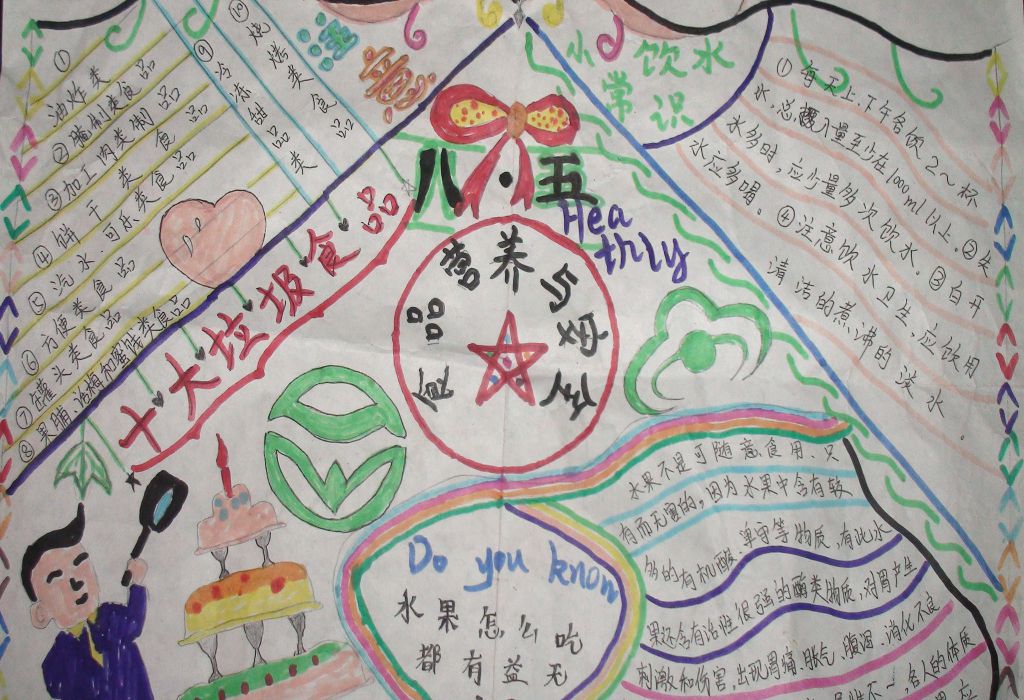 十大垃圾食品
①
油炸类
②腌制类食品
③加工肉类制品
④饼干类食品
⑤汽水可乐类食品
⑥方便类食品
⑦罐头类食品
⑧果脯、话梅和蜜饯类食品
⑨冷冻甜品类
⑩烧烤类食品
注意
八·五
Hea
thly
食品营养与安全
小饮水
常识
①每天上、下午各饮2~杯
水,总摄入量至少在1000ml以上。②失
水多时,应少量多次饮水。③白开
水应多喝。④注意饮水卫生,应饮用
清洁的煮沸的淡水。
Do you know
水果怎么吃
都有益无
水果不是可随意食用、只
有而无害的,因为水果中含有较
多的有机酸、单宁等物质,有此水
果还含有活性很强的酶类物质,对胃产生
刺激和伤害,出现胃痛、胀气、腹泻、消化不良
各人的体质
应